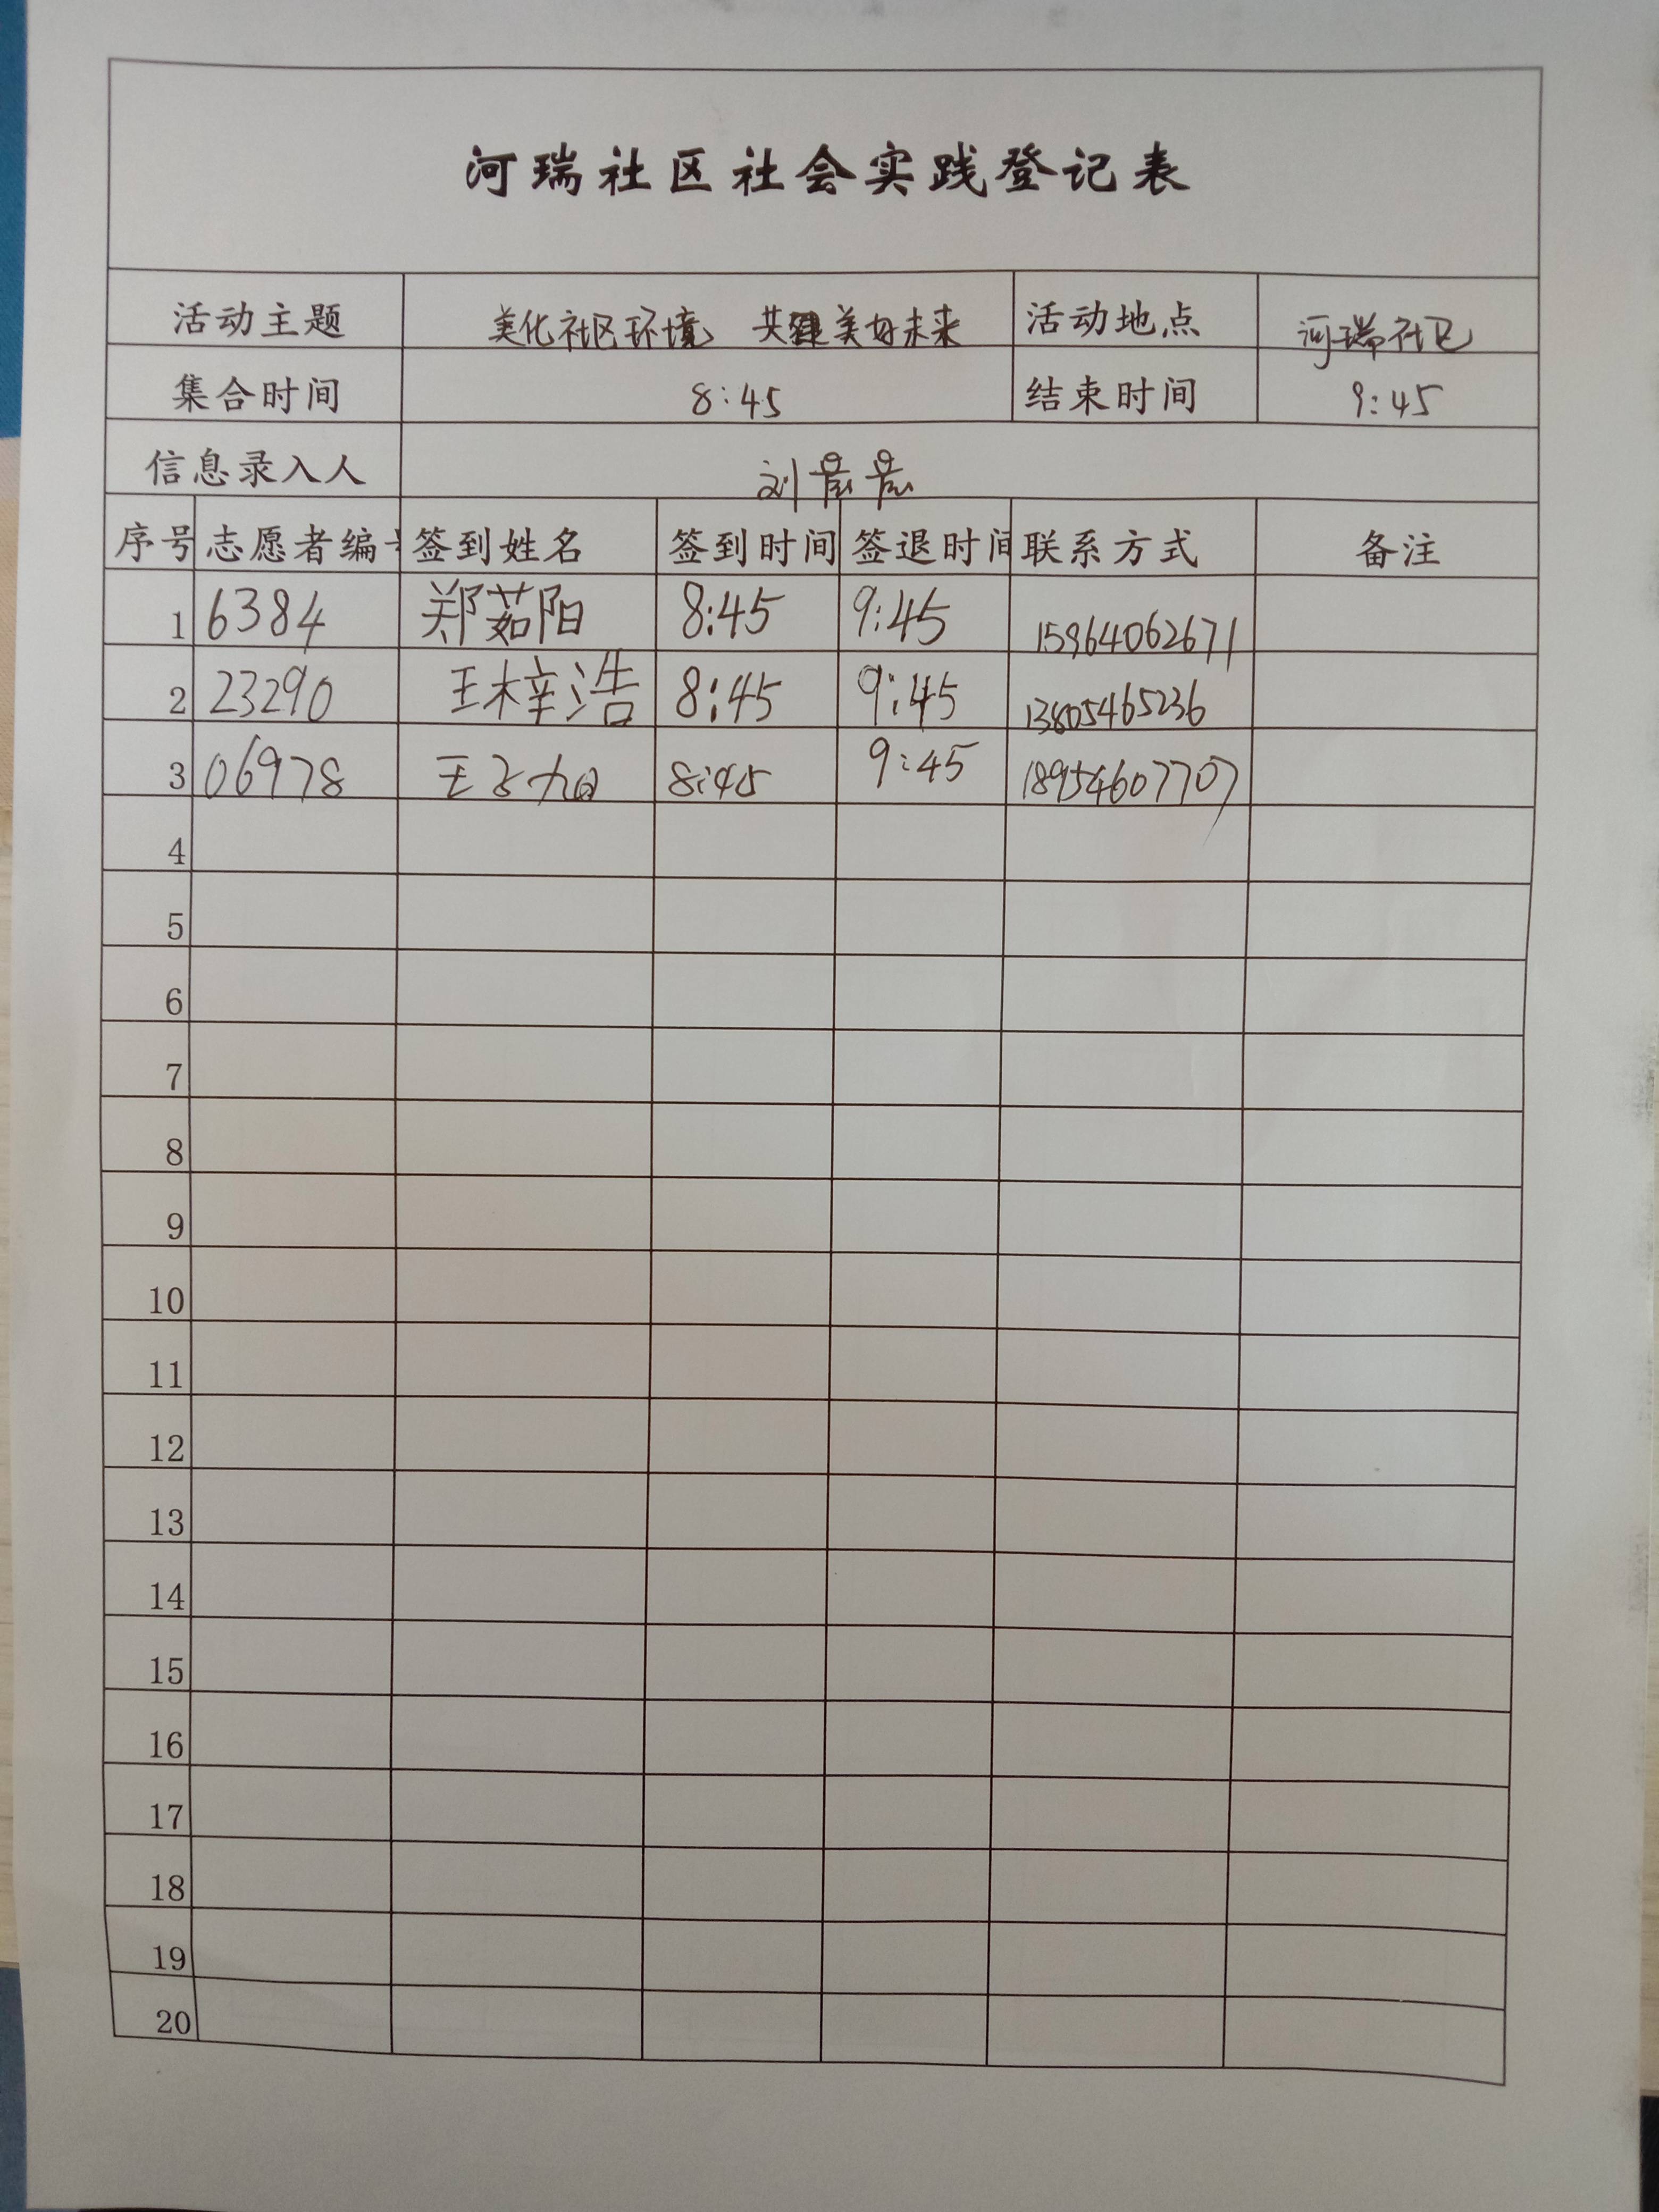 河瑞社区社会实践登记表
活动主题 美化社区环境 共建美好未来 活动地点 河瑞社区
集合时间 8:45 结束时间 9:45
信息录入人 刘
序号 志愿者编 签到姓名 签到时间 签退时间 联系方式 备注
1 6384 郑茹阳 8:45 9:45 15964062671
2 23290 王梓浩 8:45 9:45 13805465236
3 06978 王子旭 8:45 9:45 18954607707
4
5
6
7
8
9
10
11
12
13
14
15
16
17
18
19
20